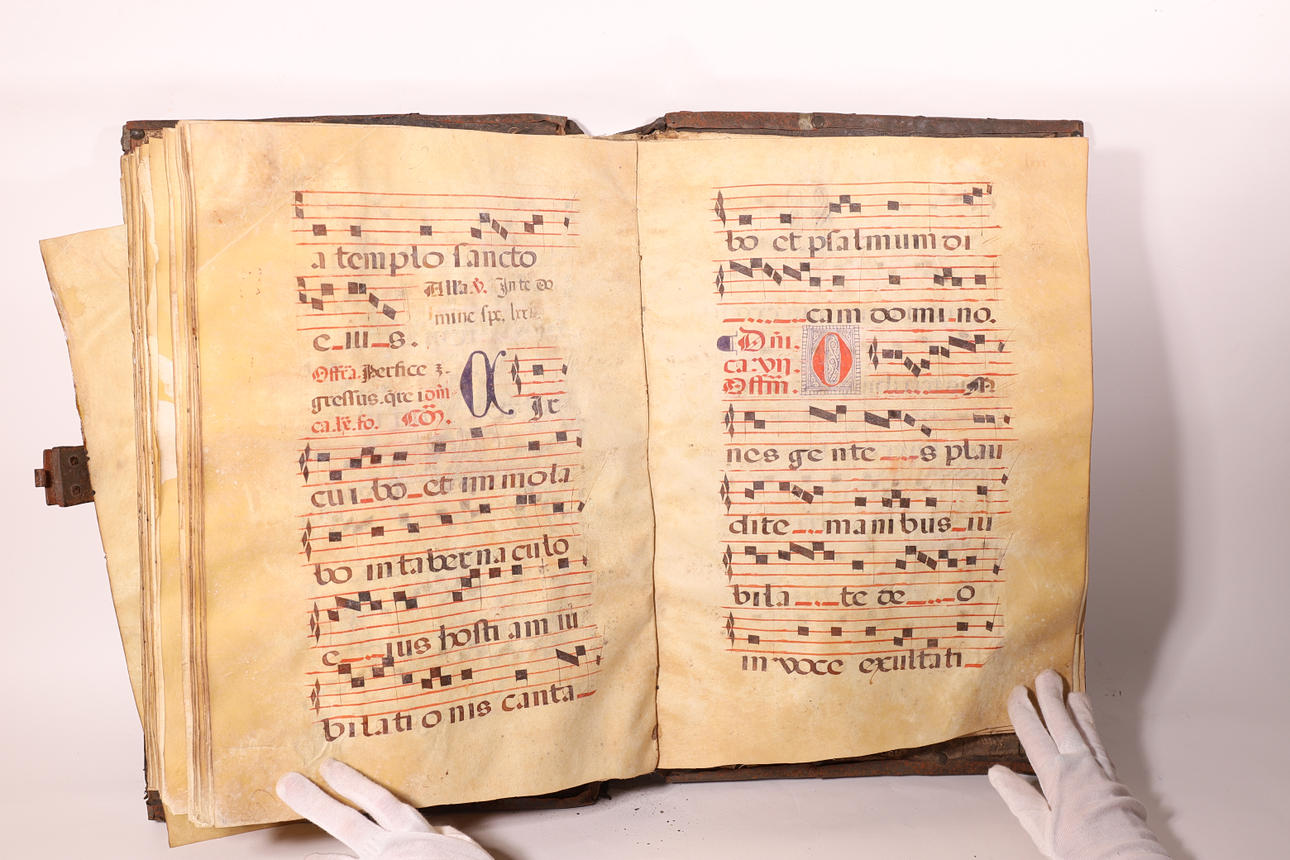 a templo sancto
Alla. V. In te do
mine spe. lxx
e_iu_s.
Offra. Perfice g
gressus. qre i dni
ca. lx. fo. Co.
Cir
cu i_bo_et im mola
bo in ta ber na culo
e_ _ius hosti am iu
bilati o nis canta_
bo et psalmum di
_ _ _cam do mi_no.
Dni.
ca. vij.
Offm. O _ _m
nes ge nte_ _s plau
dite_ _mani bus_iu
bila_ _te de_ _o
in voce exultati_